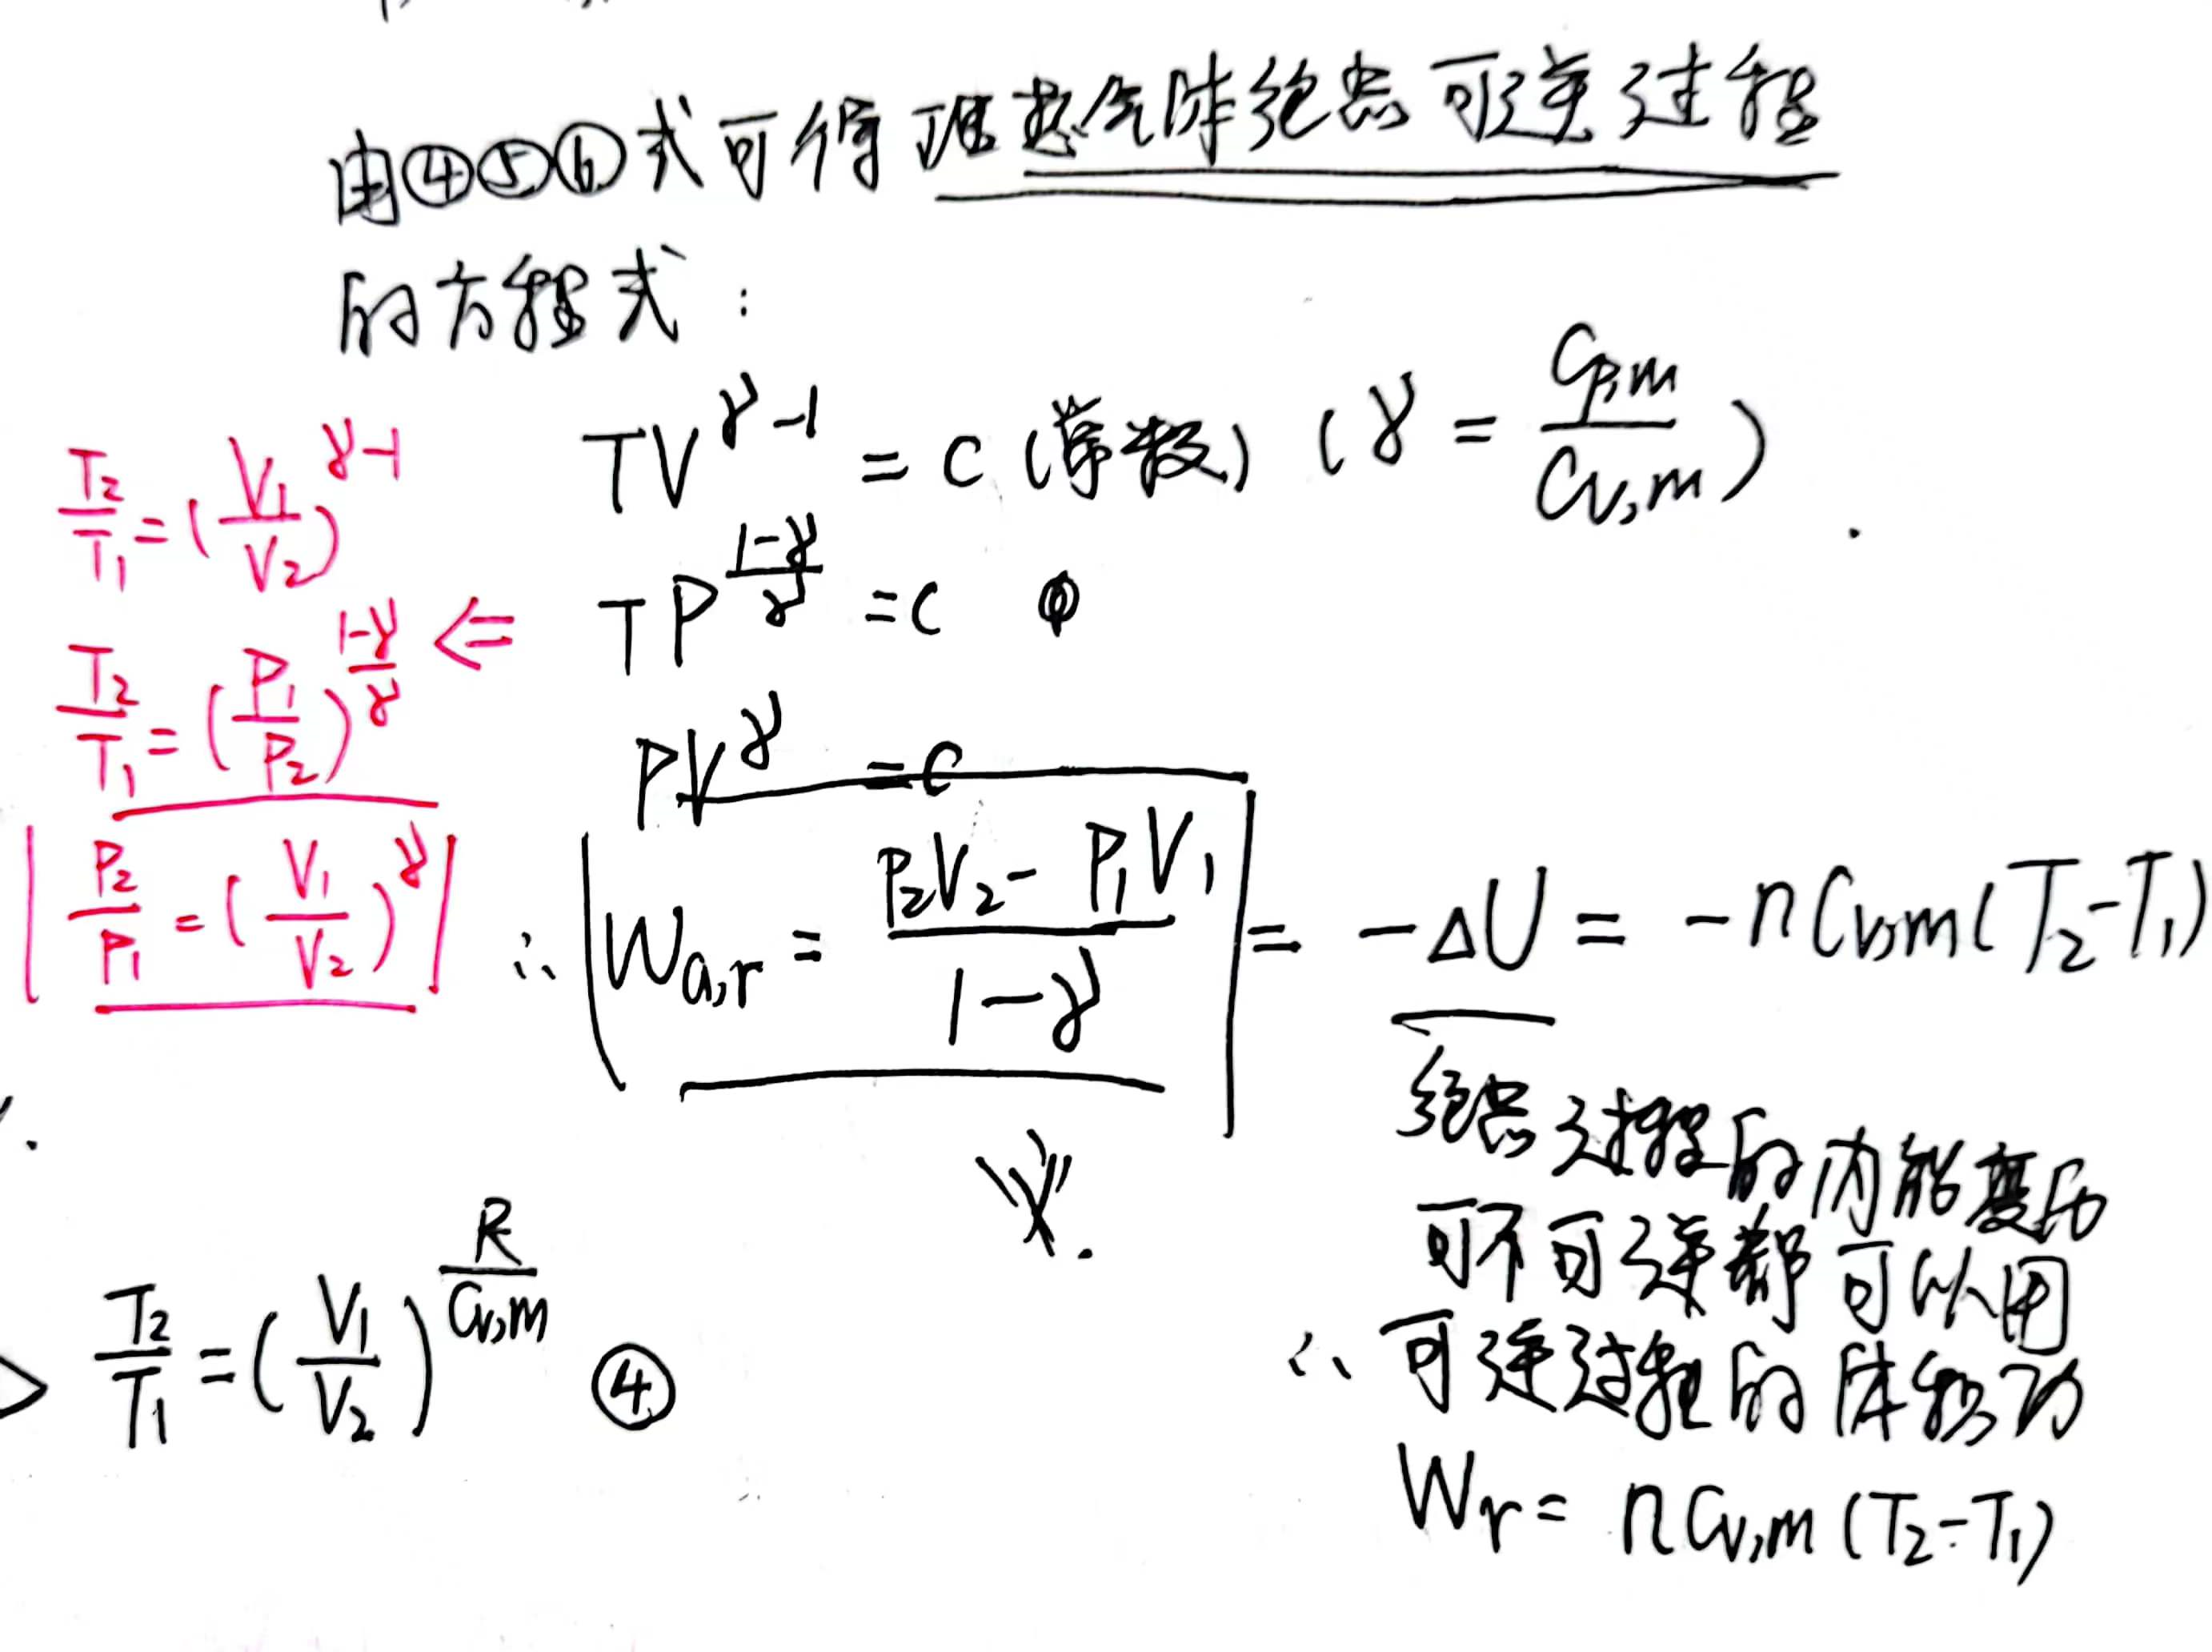 由④⑤⑥式可得理想气体绝热可逆过程
的方程式：
TV^{γ-1} = C (常数) (γ = \frac{C_{P,m}}{C_{V,m}})
TP^{\frac{1-γ}{γ}} = C
PV^γ = C
\frac{T_2}{T_1} = (\frac{V_1}{V_2})^{γ-1}
\frac{T_2}{T_1} = (\frac{P_1}{P_2})^{\frac{1-γ}{γ}} ⇐
\frac{P_2}{P_1} = (\frac{V_1}{V_2})^γ
∴ W_{a,r} = \frac{P_2V_2 - P_1V_1}{1-γ} = -ΔU = -nC_{V,m}(T_2-T_1)
绝热过程的内能变化
可不可逆都可以用
∴ 可逆过程的体积功
W_r = nC_{V,m}(T_2-T_1)
\frac{T_2}{T_1} = (\frac{V_1}{V_2})^{\frac{R}{C_{V,m}}} ④